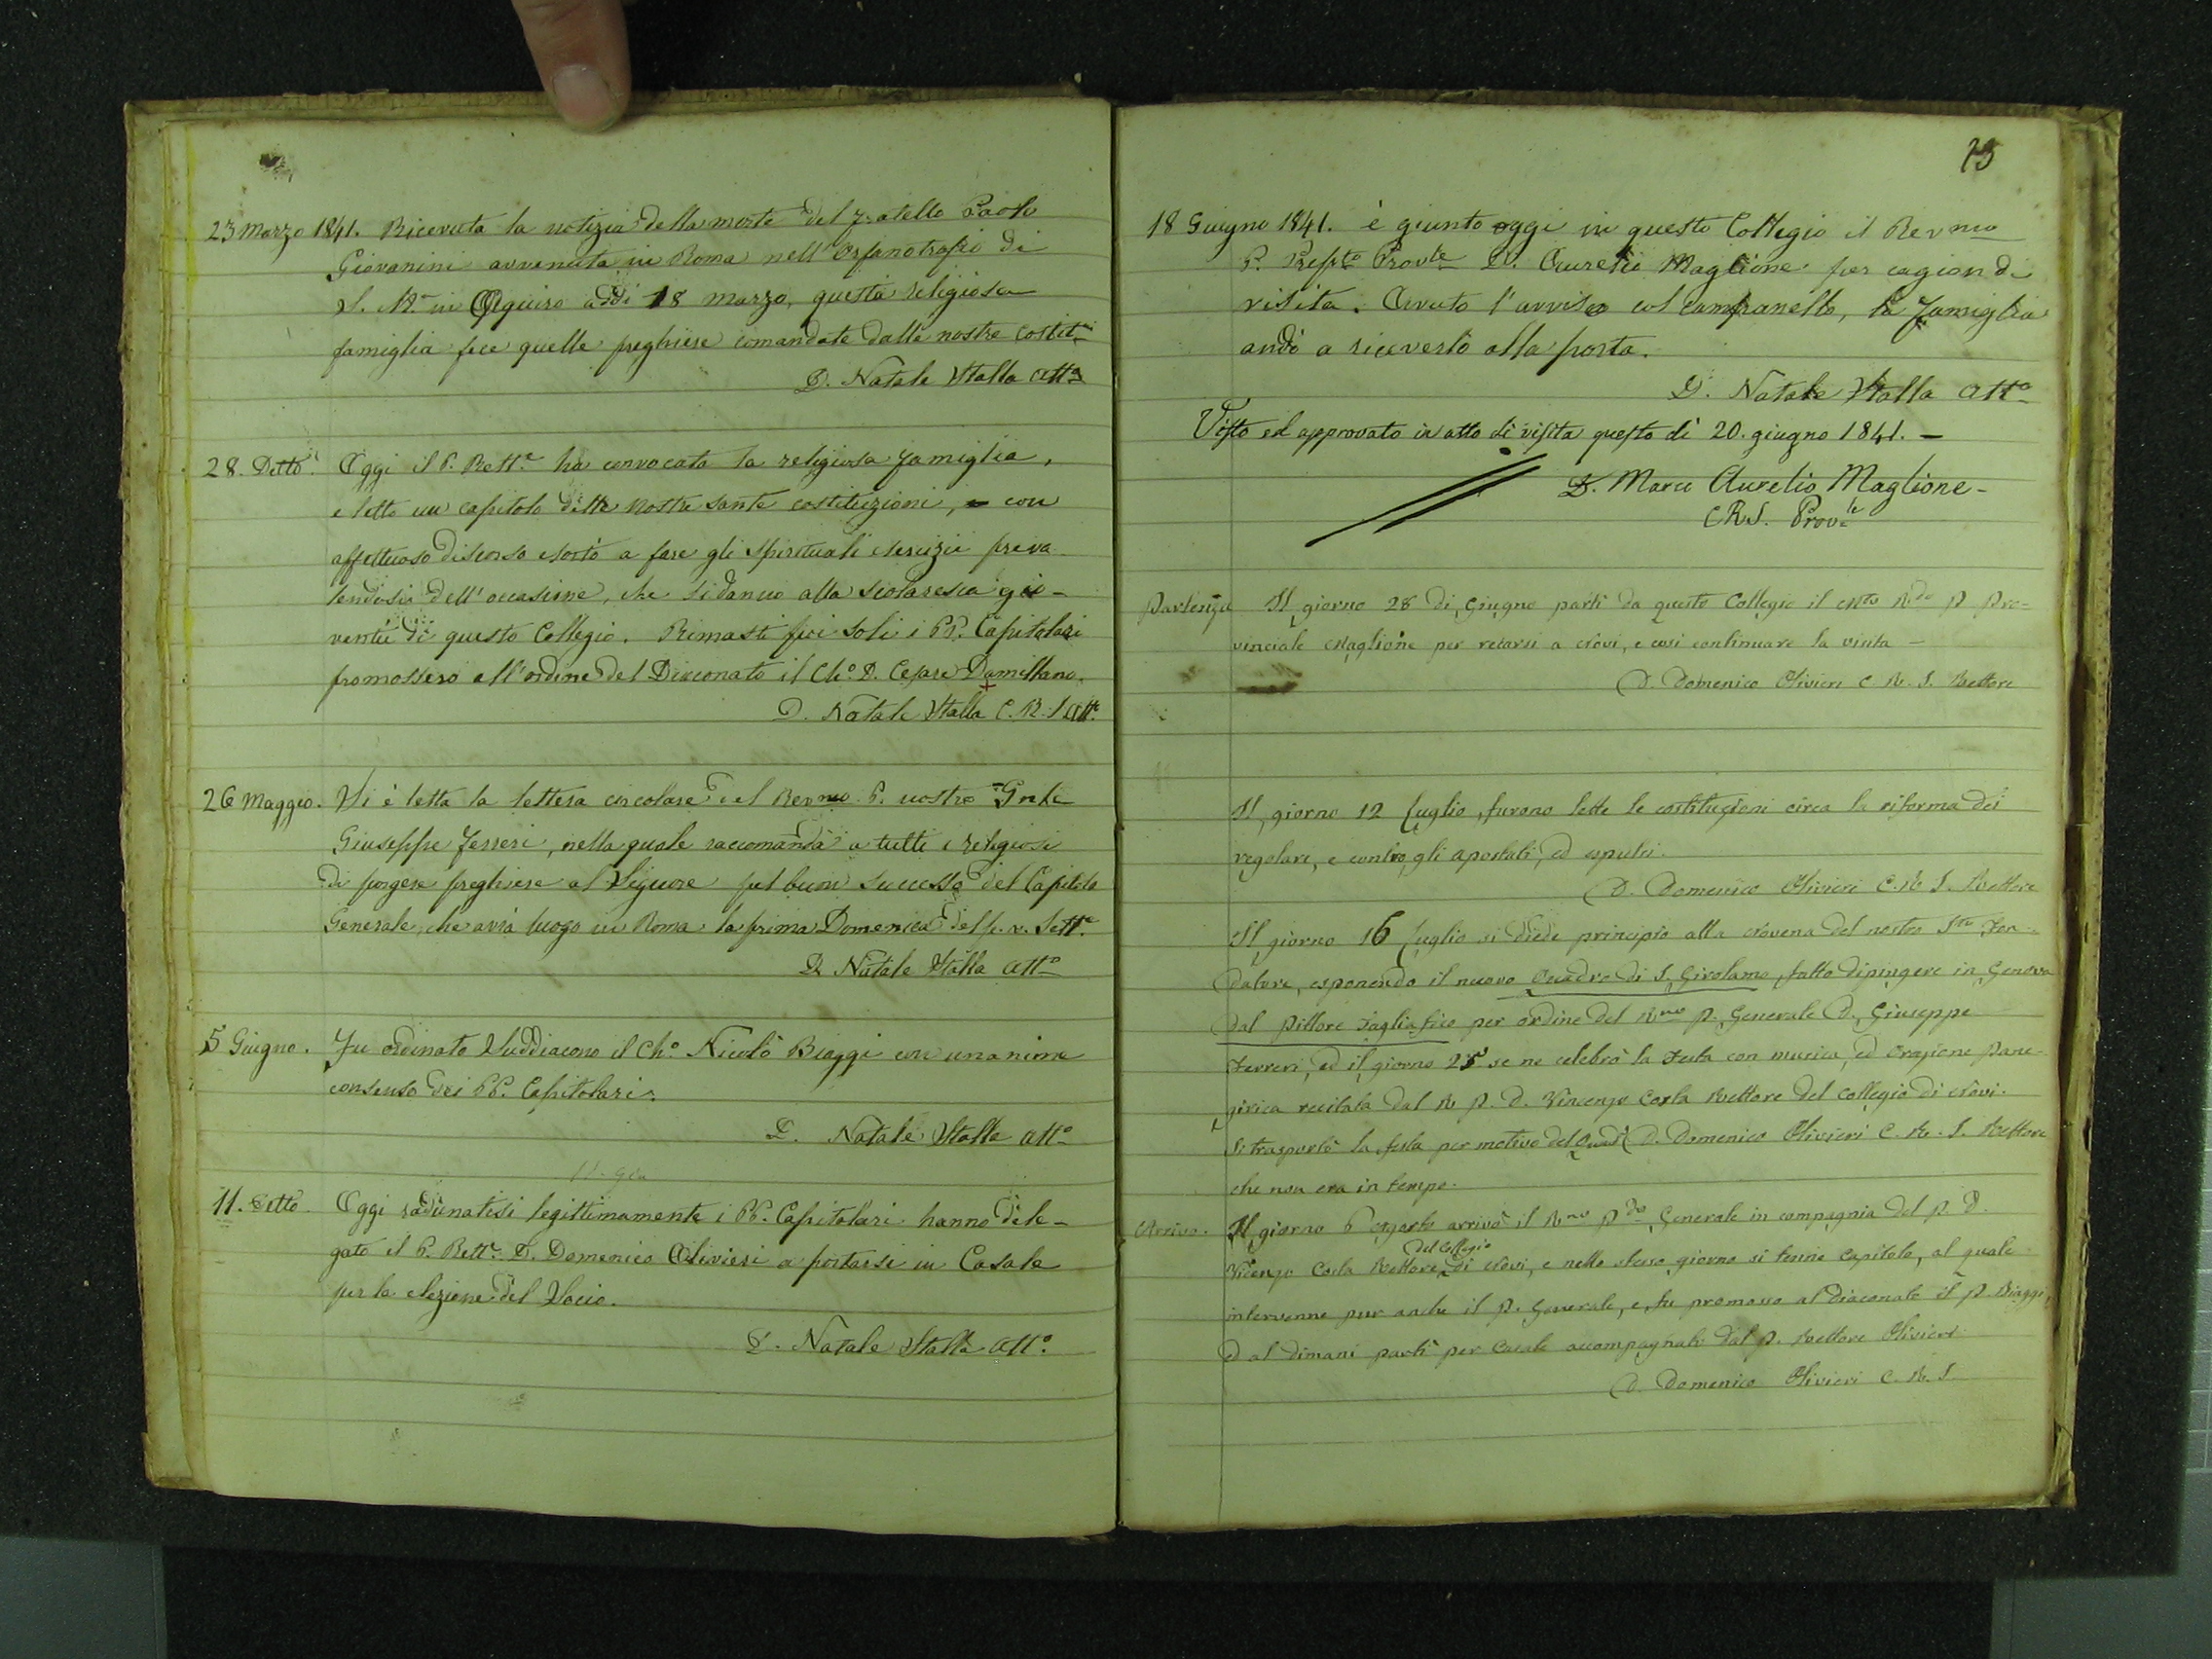 23 Marzo 1841. Ricevuta la notizia della morte del fratello Paolo
Giovanini avvenuta in Roma nell'Orfanotrofio di
S. M.a in Aquiro addì 18 marzo, questa religiosa
famiglia fece quelle preghiere comandate dalle nostre costit.ni
D. Natale Stalla Att.o
28. Detto. Oggi il P. Rett.e ha convocato la religiosa famiglia,
e letto un capitolo delle nostre sante costituzioni, con
affettuoso discorso esortò a fare gli spirituali esercizii preva
lendosi dell'occasione, che si danno alla scolaresca gio-
ventù di questo Collegio. Rimasti poi soli i PP. Capitolari
promossero all'ordine del Diaconato il Ch.o D. Cesare Damillano.
D. Natale Stalla C. R. S Att.o
26 Maggio. Si è letta la lettera circolare del Revmo P. nostro Gnle
Giuseppe Ferreri, nella quale raccomanda a tutti i religiosi
di porgere preghiere al Signore pel buon successo del Capitolo
Generale, che avrà luogo in Roma la prima Domenica del p. v. Sett.e
D. Natale Stalla Att.o
5 Giugno. Fu ordinato Suddiacono il Ch.o Nicolò Biaggi con unanime
consenso dei PP. Capitolari.
D. Natale Stalla Att.o
11. Detto. Oggi radunatisi legittimamente i PP. Capitolari hanno dele-
gato il P. Rett.e D. Domenico Olivieri a portarsi in Casale
per la elezione del Socio.
D. Natale Stalla Att.o
18 Giugno 1841. è giunto oggi in questo Collegio il Revmo
P. Prep.to Prov.le D. Aurelio Maglione per cagion di
visita. Avuto l'avviso col campanello, la famiglia
andò a riceverlo alla porta.
D. Natale Stalla Att.o
Visto ed approvato in atto di visita questo dì 20. giugno 1841. —
D. Marco Aurelio Maglione -
CRS. Prov.le
Partenza Il giorno 28 di Giugno partì da questo Collegio il Mto Rdo P. Pro-
vinciale Maglione per recarsi a Novi, e così continuare la visita —
D. Domenico Olivieri C. R. S. Rettore
Il giorno 12 Luglio, furono lette le costituzioni circa la riforma dei
regolari, e contro gli apostati, ed espulsi.
D. Domenico Olivieri C. R. S. Rettore
Il giorno 16 Luglio si diede principio alla Novena del nostro Sto Fon-
datore, esponendo il nuovo Quadro di S. Girolamo, fatto dipingere in Genova
dal Pittore Tagliafico per ordine del Rmo P. Generale D. Giuseppe
Ferreri, ed il giorno 25 se ne celebrò la Festa con musica, ed Orazione Pane-
girica recitata dal R. P. D. Vincenzo Costa Rettore del Collegio di Novi.
Si trasportò la festa per motivo del Quad.o D. Domenico Olivieri C. R. S. Rettore
che non era in tempo.
Arrivo. Il giorno 6 Agosto arrivò il Rmo P.do Generale in compagnia del P. D.
Vicenzo Costa Rettore del Collegio di Novi, e nello stesso giorno si tenne Capitolo, al quale
intervenne pur anche il P. Generale, e fu promosso al Diaconato il P. Biaggi,
ed al dimani partì per Casale accompagnato dal P. Rettore Olivieri
D. Domenico Olivieri C. R. S.